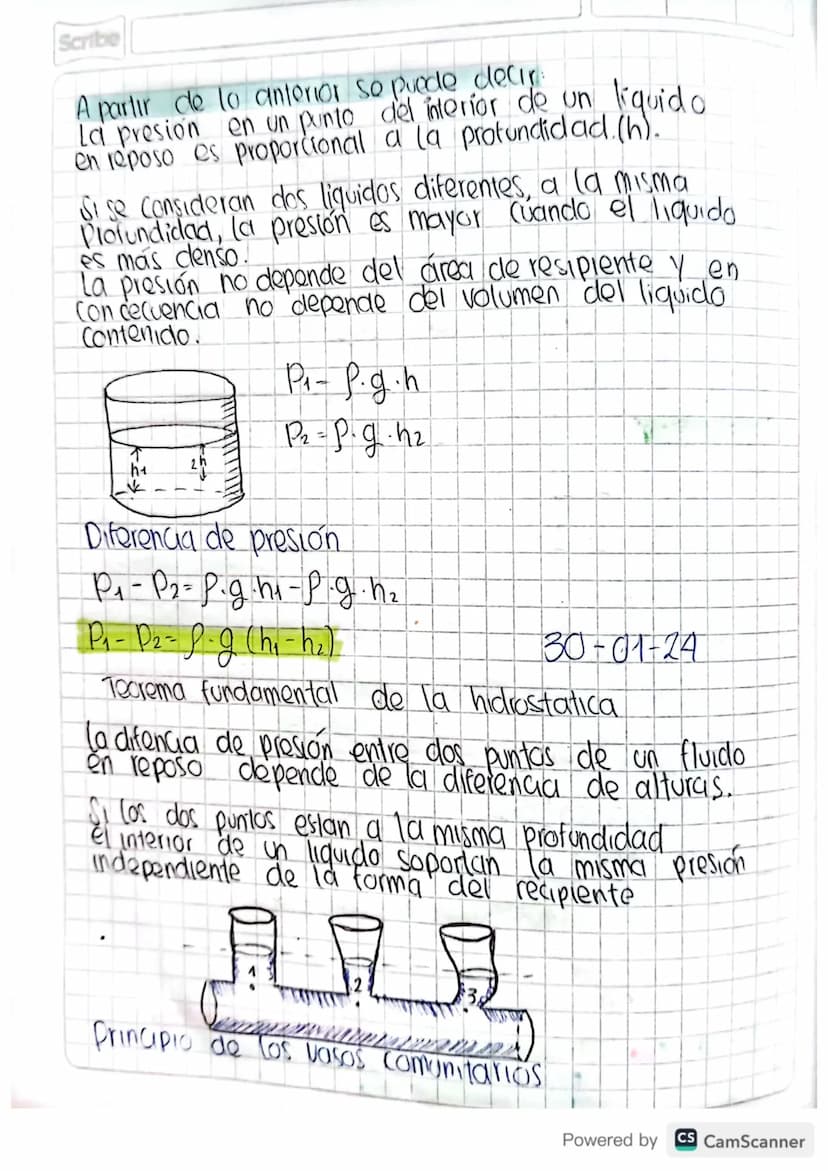 Scribe
A partir de lo anterior se puede decir:
La presión en un punto del interior de un líquido
en reposo es proporcional a la profundidad.(h).
Si se consideran dos líquidos diferentes, a la misma
Profundidad, la presión es mayor cuando el liquido
es más denso.
La presión no depende del área de resipiente y en
concecuencia no depende del volumen del liquido
contenido.
P₁- ρ·g·h
P₂=ρ·g·h₂
h₁
2h
Diferencia de presión
P₁-P₂=ρ·g·h₁-ρ·g·h₂
P₁-P₂=ρ·g(h₁-h₂)
30-01-24
Teorema fundamental de la hidrostatica
la difencia de presión entre dos puntos de un fluido
en reposo depende de la diferencia de alturas.
Si los dos puntos estan a la misma profundidad
el interior de un liquido soportan la misma presión
independiente de la forma del recipiente
1 2 3
Principio de los vasos comunitarios
Powered by CS CamScanner